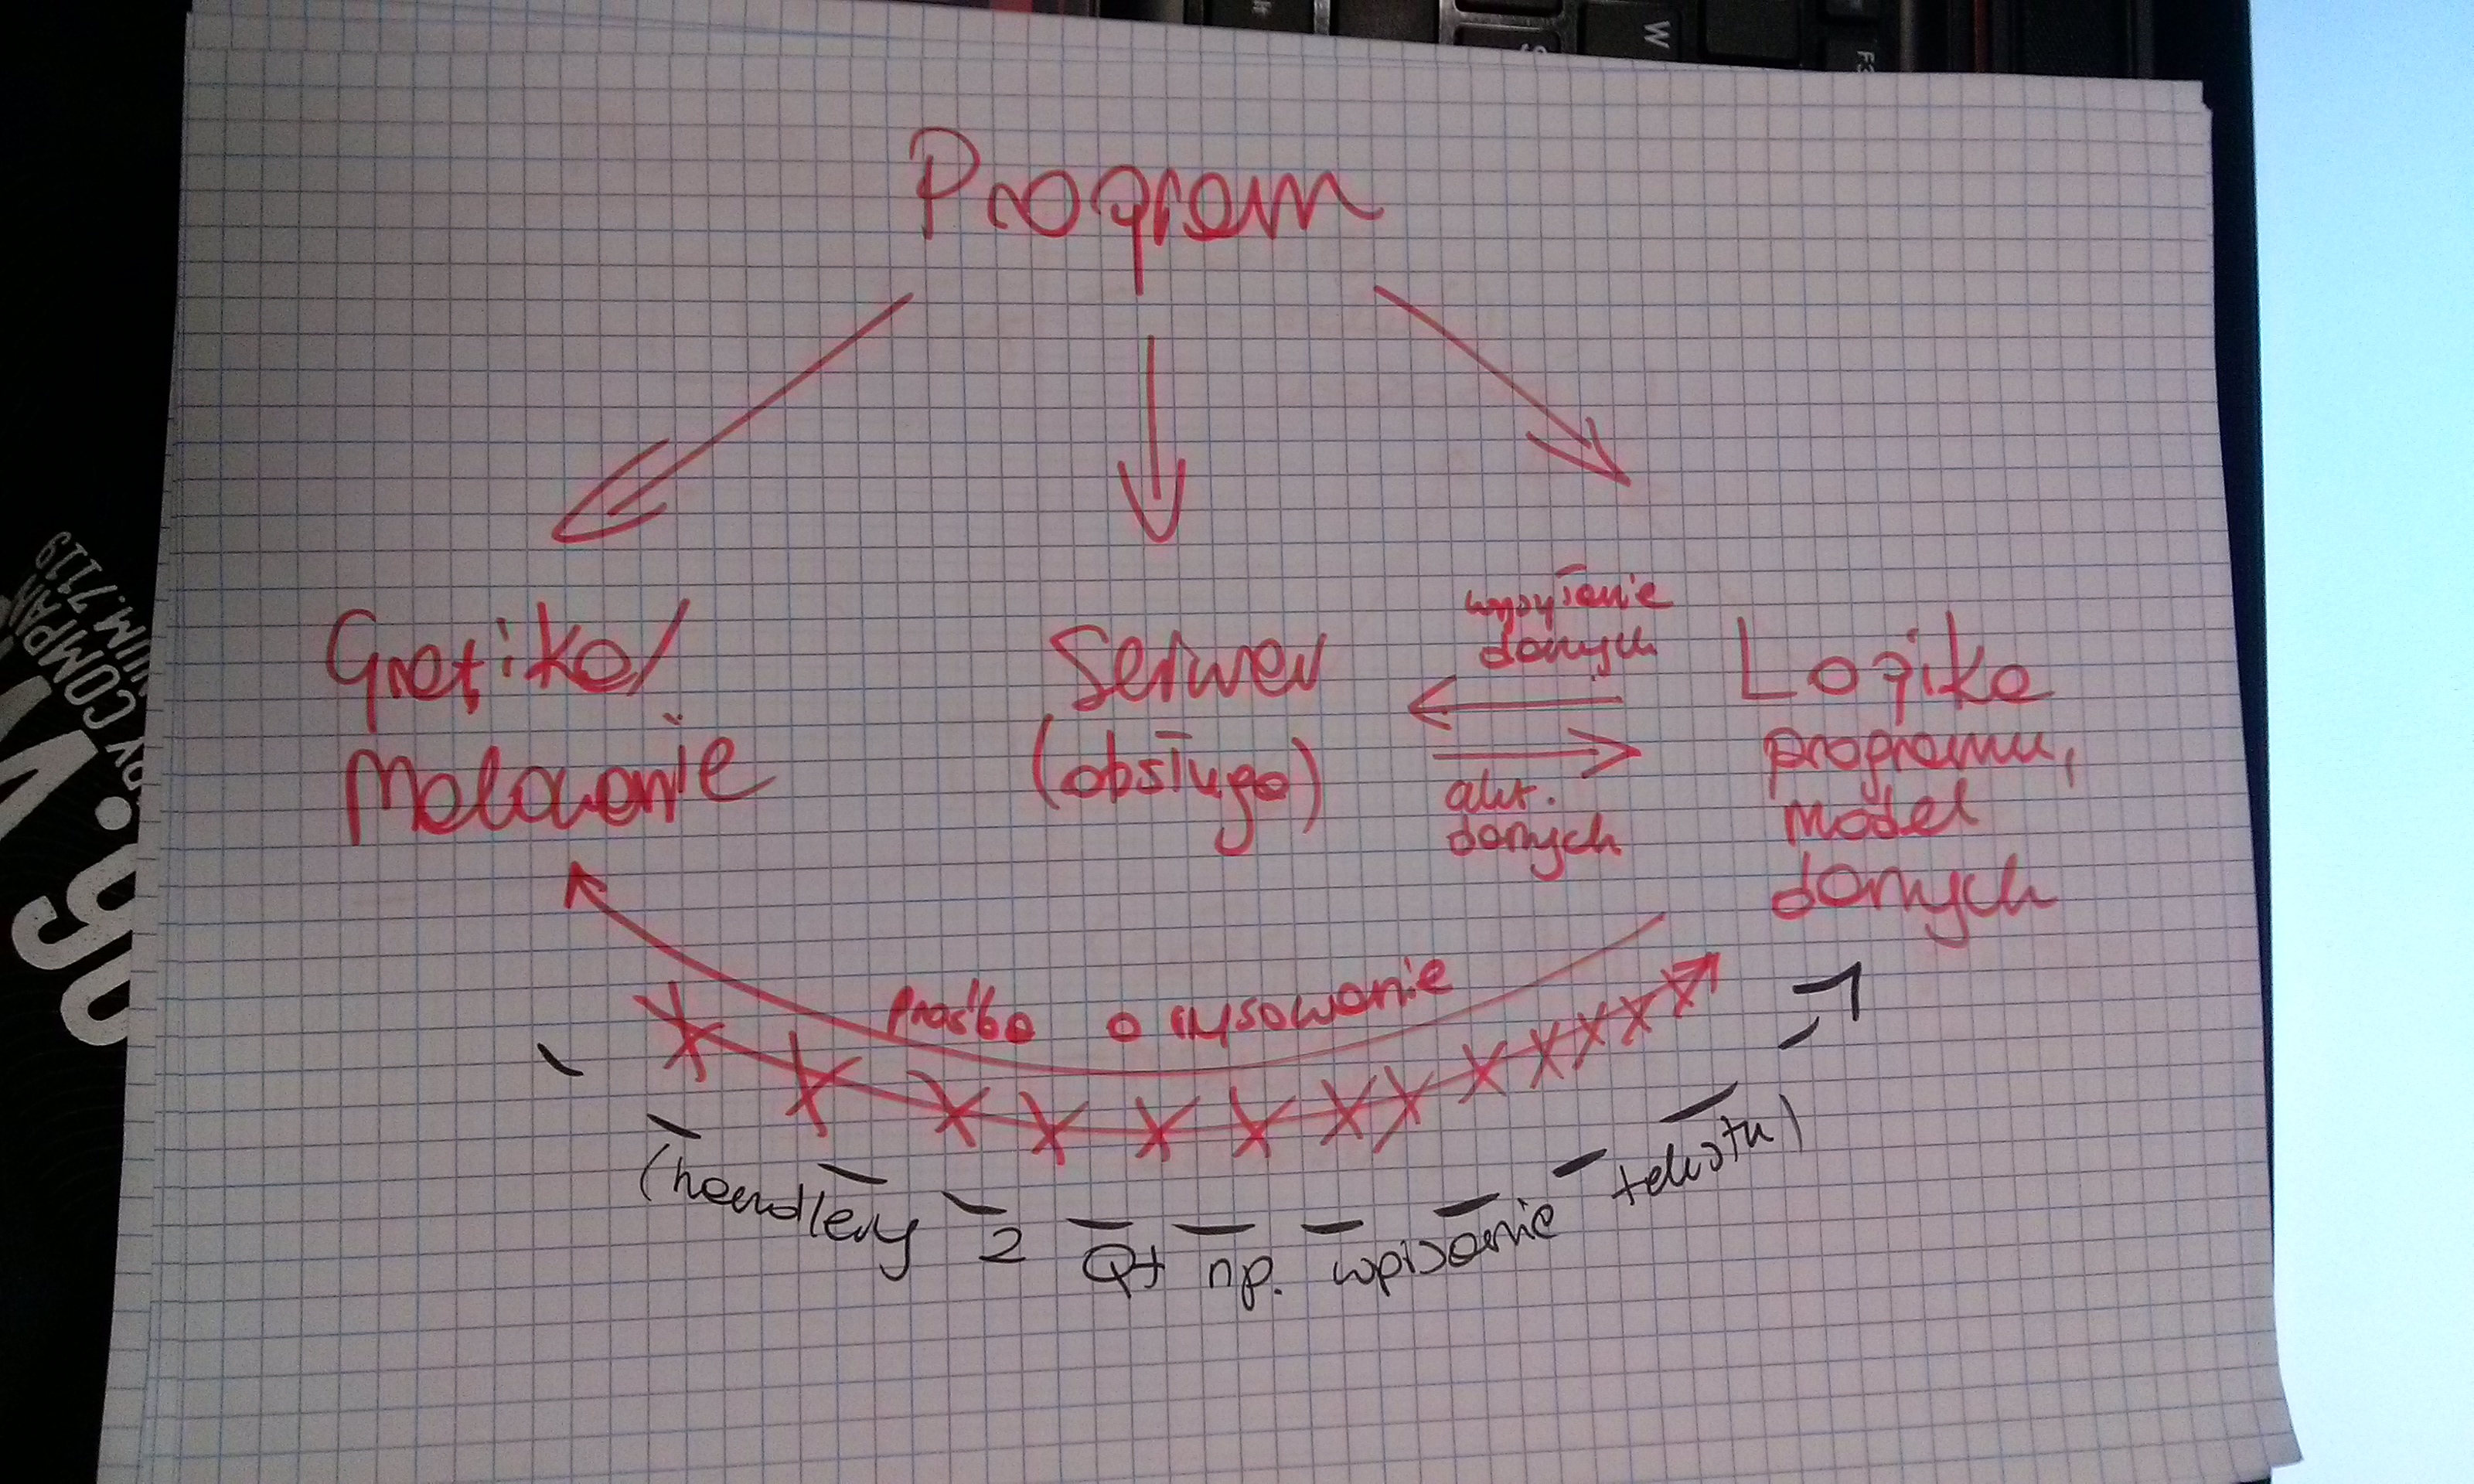 Program
Grafika/
Malowanie
Serwer
(obsługa)
wysyłanie
danych
akt.
danych
Logika
programu,
model
danych
prośba o rysowanie
(handlery z Qt np. wpisanie tekstu)
W
F3
NUM.7119
COMPAN